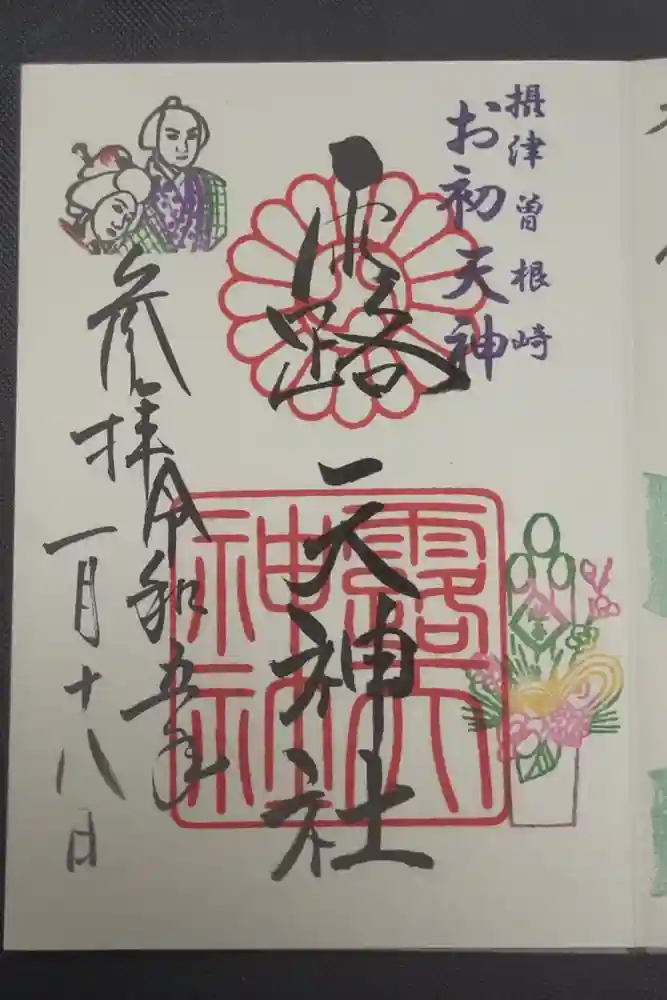 摂津曽根崎
お初天神
露 天神社
露天神社
参拝
令和五年
一月十八日